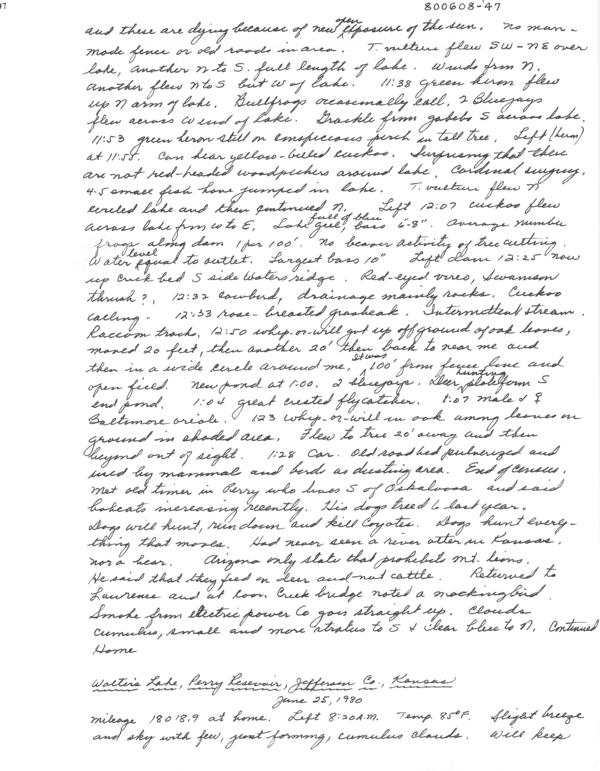 47
800608-47
and these are dying because of new open exposure of the sun. No man-
made fence or old roads in area. T. vulture flew SW-NE over
lake, another N to S. full length of lake. Winds from N.
Another flew N to S but W of lake. 11:38 green heron flew
up N arm of lake. Bullfrogs occasionally call, 2 Bluejays
flew across W end of lake. Grackle from S across lake.
11:53 green heron still on conspicuous perch in tall tree, Left (heron)
at 11:55. Can hear yellow-billed cuckoo. Surprising that there
are not red-headed woodpeckers around lake, Cardinal singing.
4-5 small fish have jumped in lake. T. vulture flew N
circled lake and then continued N. Left 12:07 cuckoo flew
across lake from W to E. Lake full of blue gill, bass 6-8". Average number
frogs along dam 1 per 100'. No beaver activity of tree cutting.
Water level equal to outlet. Largest bass 10" Left dam 12:25 now
up creek bed S side Waters ridge. Red-eyed vireo, Swanson
thrush?, 12:32 cowbird, drainage mainly rocks. Cuckoo
calling. 12:33 rose-breasted grosbeak. Intermittent stream.
Raccoon track. 12:50 whip-or-will got up off ground of oak leaves,
moved 20 feet, then another 20' then back to near me and
then in a wide circle around me. It was 100' from fence line and
open field. New pond at 1:00. 2 bluejays. Deer hunting plateform S
end pond. 1:04 great crested flycatcher. 1:07 male & ♀
Baltimore oriole. 123 whip-or-will in oak among leaves on
ground in shaded area. Flew to tree 20' away and then
beyond out of sight. 1:28 Car. Old road bed pulverized and
used by mammals and birds as dusting area. End of census.
Met old timer in Perry who lives S of Oskaloosa and said
bobcats increasing recently. His dogs treed 6 last year.
Dogs will hunt, run down and kill Coyotes. Dogs hunt every-
thing that moves. Had never seen a river otter in Kansas,
nor a bear. Arizona only state that prohibits Mt. lions.
He said that they feed on deer and not cattle. Returned to
Lawrence and at Creek bridge noted a mockingbird.
Smoke from electric power Co goes straight up. Clouds
cumulus, small and more stratus to S & clear blue to N. Continued
Home
Walters Lake, Perry Resevoir, Jefferson Co., Kansas
June 25, 1980
Mileage 18018.9 at home. Left 8:20 A.M. Temp. 85°F. Slight breeze
and sky with few, just forming, cumulus clouds. Will keep